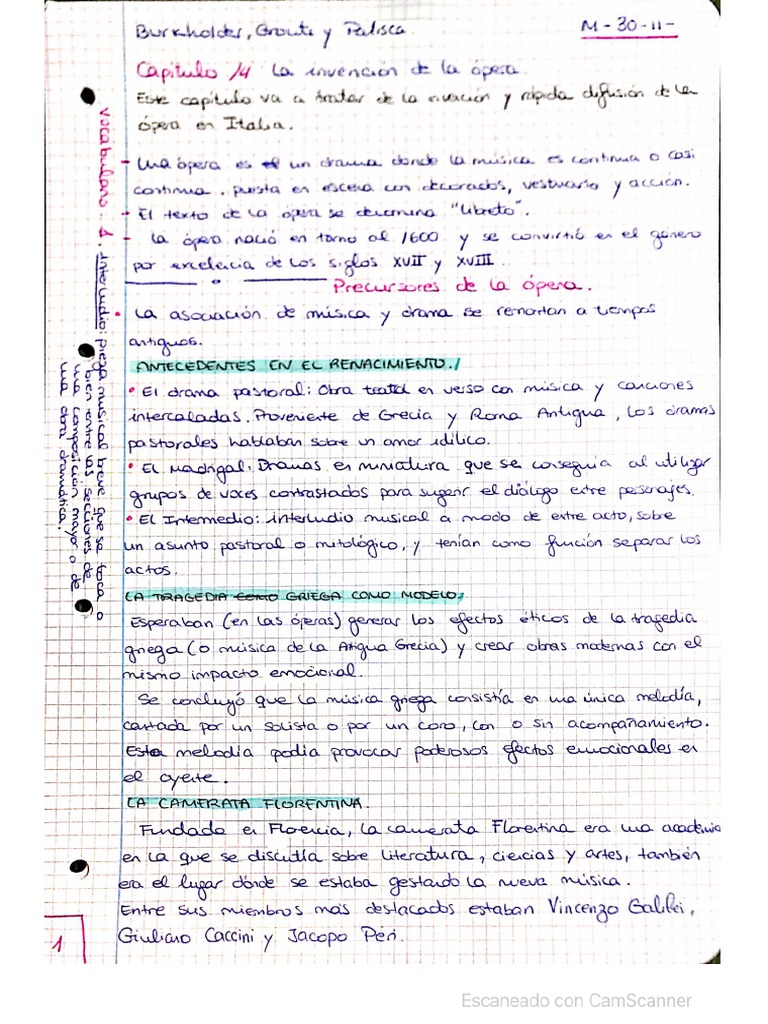 Burkholder, Grout y Palisca.
M-30-11-
Capítulo 14: La invención de la ópera.
Este capítulo va a tratar de la invación y rápida difusión de la
ópera en Italia.
- Una ópera es un drama donde la música es continua o casi
continua, puesta en escena con decorados, vestuario y acción.
- El texto de la ópera se denomina "libreto".
- La ópera nació en torno al 1600 y se convirtió en el género
por excelencia de los siglos XVII y XVIII.
Precursores de la ópera.
• La asociación de música y drama se remontan a tiempos
antiguos.
ANTECEDENTES EN EL RENACIMIENTO./
• El drama pastoral: Obra teatral en verso con música y canciones
intercaladas. Proveniente de Grecia y Roma Antigua, los dramas
pastorales hablaban sobre un amor idílico.
• El Madrigal: Dramas en miniatura que se conseguía al utilizar
grupos de voces contrastados para sugerir el diálogo entre personajes.
• El Intermedio: interludio musical a modo de entre acto, sobre
un asunto pastoral o mitológico, y tenían como función separar los
actos.
LA TRAGEDIA COMO GRIEGA COMO MODELO./
Esperaban (en las óperas) generar los efectos éticos de la tragedia
griega (o música de la Antigua Grecia) y crear obras modernas con el
mismo impacto emocional.
Se concluyó que la música griega consistía en una única melodía,
cantada por un solista o por un coro, con o sin acompañamiento.
Esta melodía podía provocar poderosos efectos emocionales en
el oyente.
LA CAMERATA FLORENTINA.
Fundada en Florencia, la camerata Florentina era una academia
en la que se discutía sobre literatura, ciencias y artes, también
era el lugar dónde se estaba gestando la nueva música.
Entre sus miembros más destacados estaban Vincenzo Galilei,
Giuliano Caccini y Jacopo Peri.
Vocabulario: 1. Interludio: pieza musical breve que se toca o
bien entre las secciones de
una composición mayor o de
una obra dramática.
1
Escaneado con CamScanner